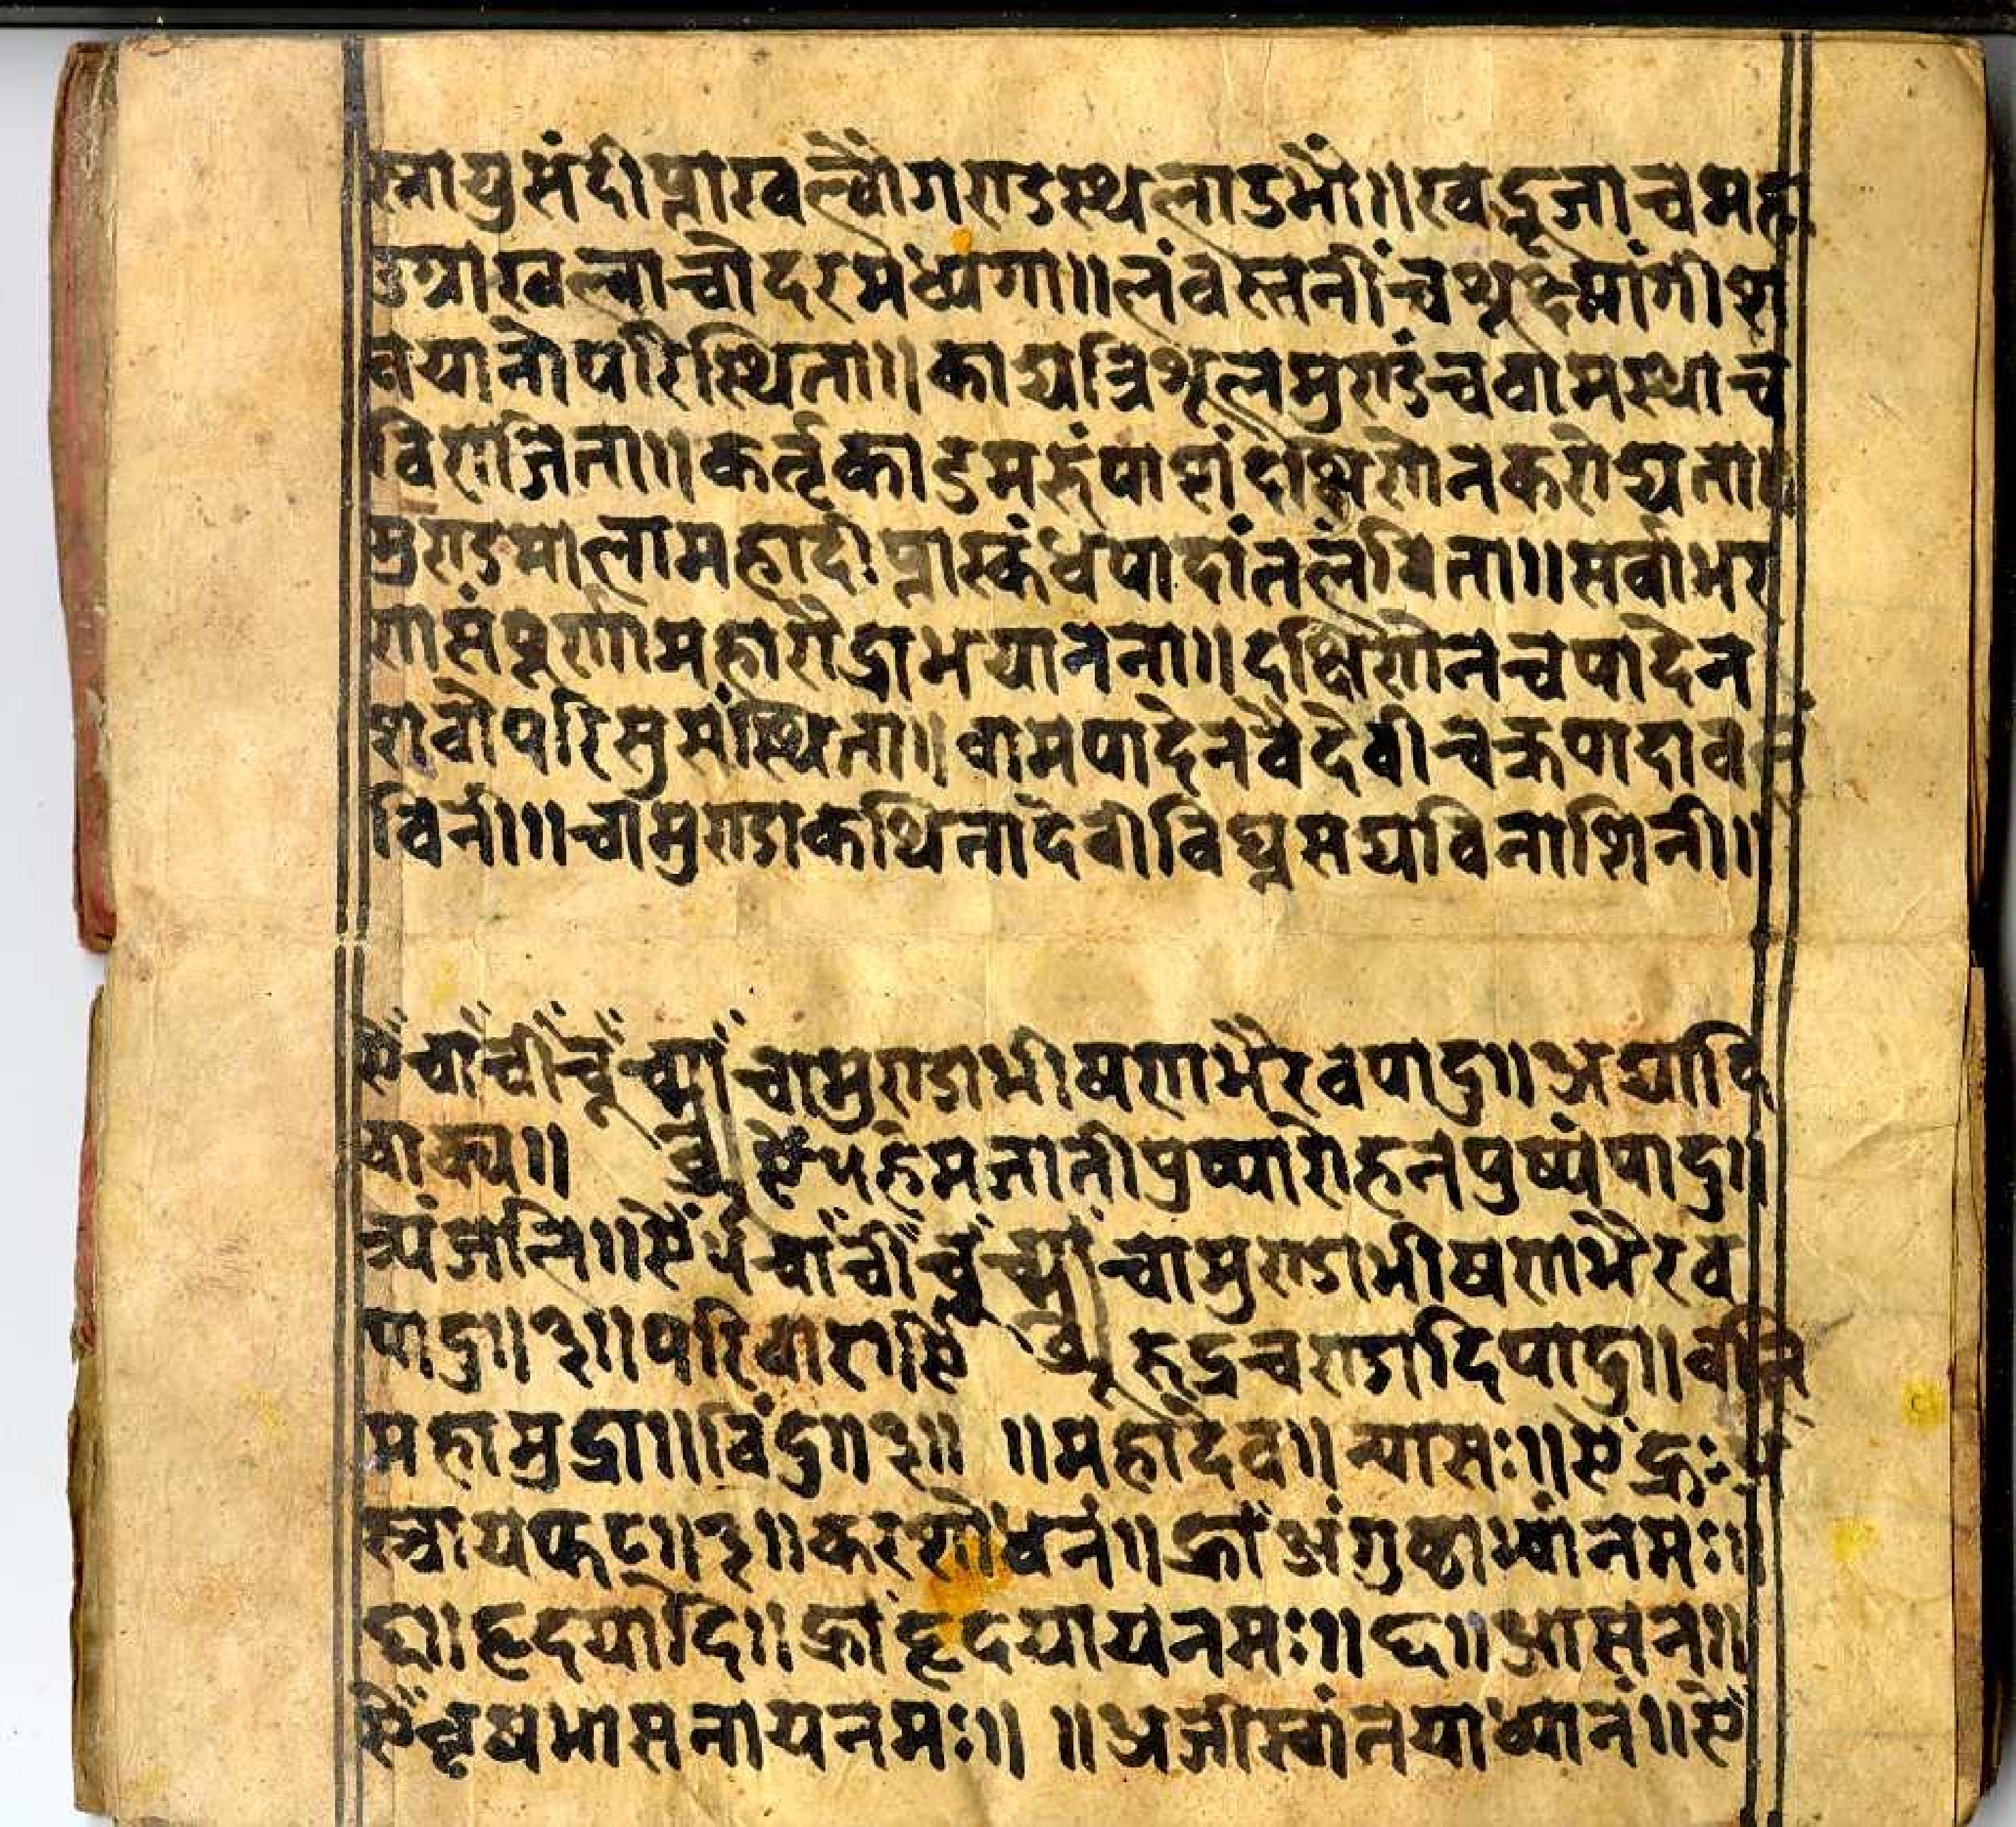 स्नायुसंदीप्ताखल्वैागराडस्थलाडभौ॥खड्गजाचमह
उग्राखल्वाचोदरमध्यगा॥लंवस्तनींचशूक्ष्मांगीश
वयानोपरिस्थिता॥काद्यत्रिशूलमुराडंचवामस्थाच
विराजिता॥कर्तृकाडमरुंपाशंदक्षिरोनकरोद्यता॥
मुराडमालामहादीप्तास्कंधपादांतलंविता॥सर्वाभर
रासंपूर्णामहारौद्राभयानना॥दक्षिरोनचपादेन
शवोपरिसुसंस्थिता॥वामपादेनवैदेवीचक्रपादावलं
विनी॥चामुराडाकथितादेवीविघ्नसद्यविनाशिनी॥
ऐंचांचींचूं चामुराडाभीषराभैरवपादु॥अद्यादि
वाक्य॥ हेमजातीपुष्पारोहनपुष्पंपादु॥
त्र्यंजालि॥ऐं चांचींचूं चामुराडाभीषराभैरव
पादु॥३॥परिवाराऐं रुद्रचराडादिपादु॥वलि
महामुद्रा॥विंदु॥३॥ ॥महादेव॥न्यासः॥ऐंह्रः
स्त्रायफट्॥३॥करशोधनं॥ह्रांअंगुष्ठाभ्यांनमः॥
॥हृदयादि॥ह्रांहृदयायनमः॥ ॥आसन॥
ऐंवृषभासनायनमः॥ ॥अजीस्वांतयाध्यानं॥ऐं